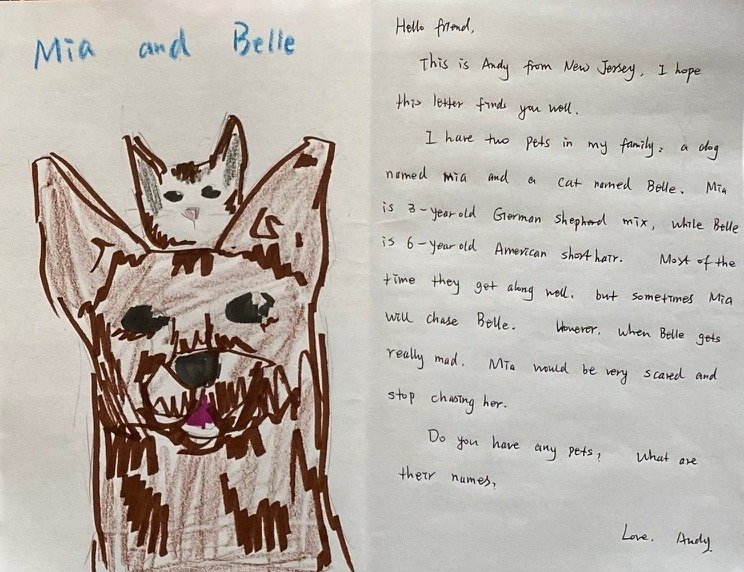 Mia and Belle
Hello friend,
This is Andy from New Jersey, I hope
this letter finds you well.
I have two pets in my family: a dog
named Mia and a cat named Belle. Mia
is 3-year old German Shepherd mix, while Belle
is 6-year old American short hair. Most of the
time they get along well, but sometimes Mia
will chase Belle. However, when Belle gets
really mad, Mia would be very scared and
stop chasing her.
Do you have any pets, What are
their names,
Love, Andy